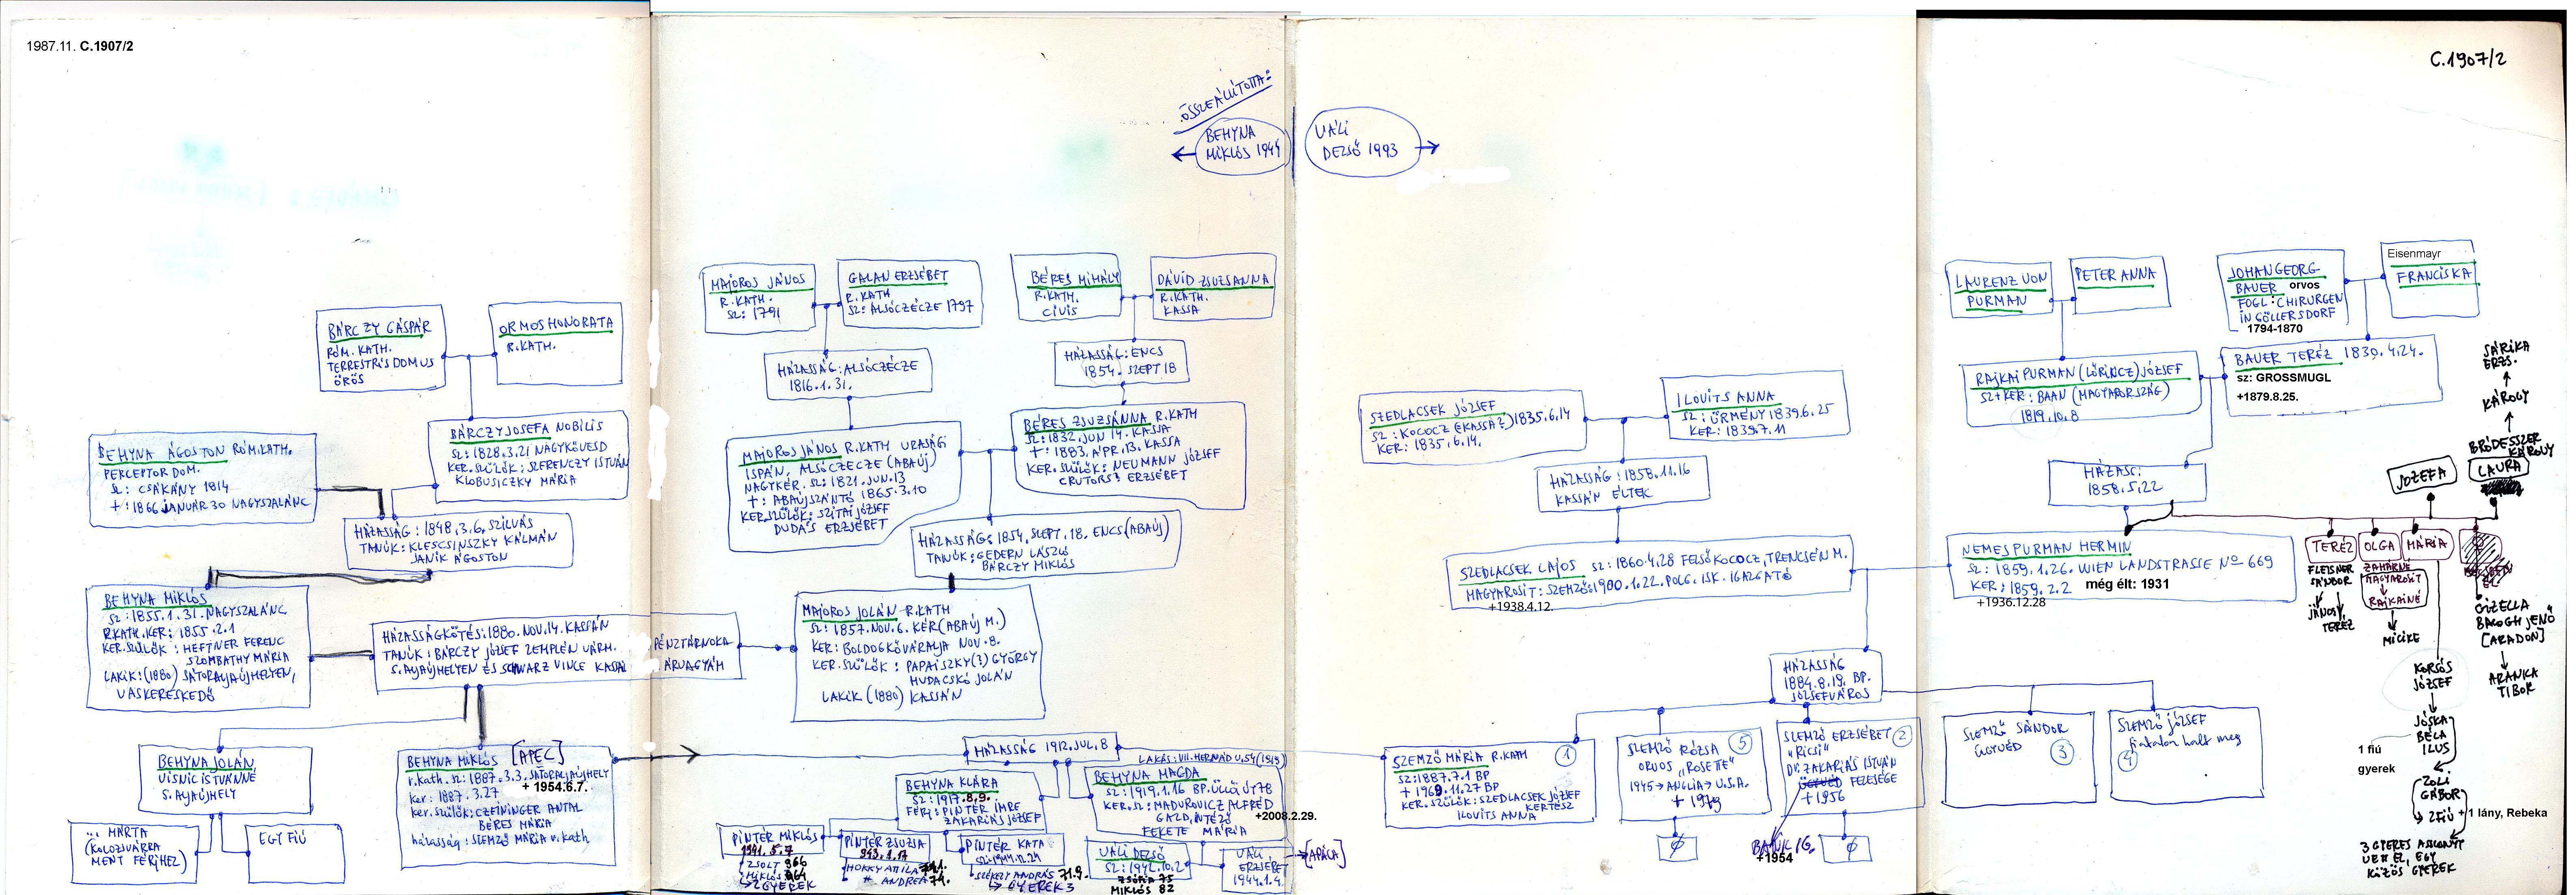 1987.11. C.1907/2
C.1907/2
ÖSSZEÁLLÍTOTTA:
BEHYNA
MIKLÓS 1944
VÁLI
DEZSŐ 1993
BÁRCZY GÁSPÁR
RÓM. KATH.
TERRESTRIS DOMUS
ŐRÖS
ORMOS HONORATA
R.KATH.
BEHYNA ÁGOSTON RÓM.KATH.
PERCEPTOR DOM.
SZ: CSÁKÁNY 1814
+: 1866 JANUÁR 30 NAGYSZALÁNC
BÁRCZY JOSEFA NOBILIS
SZ: 1828.3.21 NAGYKÖVESD
KER.SZÜLŐK: SZERENCZY ISTVÁN
KLOBUSICZKY MÁRIA
HÁZASSÁG: 1848.3.6, SZILVÁS
TANÚK: KLESCSINSZKY KÁLMÁN
JANIK ÁGOSTON
BEHYNA MIKLÓS
SZ: 1855.1.31. NAGYSZALÁNC
R.KATH. KER: 1855.2.1
KER.SZÜLŐK: HEFTNER FERENC
SZOMBATHY MÁRIA
LAKIK: (1880) SÁTORALJAÚJHELYEN,
VASKERESKEDŐ
HÁZASSÁGKÖTÉS: 1880. NOV. 14. KASSÁN
TANÚK: BÁRCZY JÓZSEF ZEMPLÉN VÁRM. PÉNZTÁRNOKA
S.AUJHELYEN ÉS SCHWARZ VINCE KASSAI ÁRVAGYÁM
BEHYNA JOLÁN
VISNICISTVÁNNÉ
S.AUJHELY
MÁRTA
(KOLOZSVÁRRA
MENT FÉRJHEZ)
EGY FIÚ
BEHYNA MIKLÓS [APEC]
r.kath. sz: 1887.3.3. SÁTORALJAÚJHELY
ker: 1887.3.27
+ 1954.6.7.
ker.szülők: CZEININGER ANTAL
BÉRES MÁRIA
házasság: SZEMZŐ MÁRIA r.kath
MAJOROS JÁNOS
R.KATH.
SZ: 1791
GALAN ERZSÉBET
R.KATH.
SZ: ALSÓCZÉCZE 1797
BÉRES MIHÁLY
R.KATH.
CIVIS
DÁVID ZSUZSANNA
R.KATH.
KASSA
HÁZASSÁG: ALSÓCZÉCZE
1816.1.31.
HÁZASSÁG: ENCS
1854. SZEPT 18
MAJOROS JÁNOS R.KATH URASÁGI
ISPÁN, ALSÓCZECZE (ABAÚJ)
NAGYKÉR. SZ: 1821. JUN. 13
+: ABAÚJSZÁNTÓ 1865.3.10
KER.SZÜLŐK: SZITAI JÓZSEF
DUDÁS ERZSÉBET
BÉRES ZSUZSÁNNA R.KATH
SZ: 1832. JUN 14. KASSA
+: 1883. APR. 13. KASSA
KER.SZÜLŐK: NEUMANN JÓZSEF
CRUTORS? ERZSÉBET
HÁZASSÁG: 1854. SZEPT. 18. ENCS (ABAÚJ)
TANÚK: GEDERN LÁSZLÓ
BÁRCZY MIKLÓS
MAJOROS JOLÁN R.KATH
SZ: 1857. NOV. 6. KÉR (ABAÚJ M.)
KER: BOLDOGKŐVÁRALJA NOV. 8.
KER.SZÜLŐK: PAPAISZKY(?) GYÖRGY
HUDACSKÓ JOLÁN
LAKIK (1880) KASSÁN
HÁZASSÁG 1912. JUL. 8
LAKÁS: VII. HERNÁD U. 54 (1919)
BEHYNA KLÁRA
SZ: 1917.8.9.
FÉRJ: PINTÉR IMRE
ZAKARIÁS JÓZSEF
BEHYNA MAGDA
SZ: 1919.1.16 BP. ÜLLŐI ÚT 78
KER.SZ: MADUROVICZ ALFRÉD
GAZD. INTÉZŐ
FEKETE MÁRIA
+2008.2.29.
PINTÉR MIKLÓS
1941.5.7
ZSOLT 966
MIKLÓS 964
2 GYEREK
PINTÉR ZSUZSA
943.1.17
HORKY ATTILA 71.
ANDREA 74.
PINTÉR KATA
SZ: 1944.12.24
SZÉKELY ANDRÁS 71.9.
GYEREK 3
VÁLI DEZSŐ
SZ: 1942.10.2
ZSÓFIA 75
MIKLÓS 82
VÁLI
ERZSÉBET
1944.1.4.
[APÁCA]
SZEDLACSEK JÓZSEF
1835.6.14
SZ: KOCOCZ (KASSA?)
KER: 1835.6.14.
ILOVITS ANNA
SZ: ÜRMÉNY 1839.6.25
KER: 1839.7.11
HÁZASSÁG: 1858.11.16
KASSÁN ÉLTEK
SZEDLACSEK LAJOS SZ: 1860.4.28 FELSŐKOCOCZ, TRENCSÉN M.
MAGYAROSÍT: SZEMZŐ: 1900.1.22. POLG. ISK. IGAZGATÓ
+1938.4.12.
HÁZASSÁG
1884.8.19. BP.
JÓZSEFVÁROS
SZEMZŐ MÁRIA R.KATH
1
SZ: 1887.7.1 BP
+ 1969.11.27 BP
KER.SZÜLŐK: SZEDLACSEK JÓZSEF
KERTÉSZ
ILOVITS ANNA
SZEMZŐ RÓZSA
5
ORVOS "ROSETTE"
1945 → ANGLIA → U.S.A.
Ø
SZEMZŐ ERZSÉBET
2
"RICSI"
DR. ZAKARIÁS ISTVÁN
FELESÉGE
+1956
+1954
Ø
SZEMZŐ SÁNDOR
ÜGYVÉD
3
SZEMZŐ JÓZSEF
fiatalon halt meg
4
LAURENZ VON
PURMAN
PETER ANNA
JOHAN GEORG
BAUER orvos
FOGL: CHIRURGEN
IN GÖLLERSDORF
1794-1870
Eisenmayr
FRANCISKA
RAJKAI PURMAN (LŐRINCZ) JÓZSEF
SZ+KER: BAAN (MAGYARORSZÁG)
1819.10.8
BAUER TERÉZ 1839.4.24.
sz: GROSSMUGL
+1879.8.25.
HÁZASS:
1858.5.22
NEMES PURMAN HERMIN
SZ: 1859.1.26. WIEN LANDSTRASSE No 669
KER: 1859.2.2
még élt: 1931
+1936.12.28
SÁRIKA
ERZS.
KÁROLY
BRÓDESSZER
KÁROLY
LAURA
JOZEFA
TERÉZ
FLEISNER
SÁNDOR
JÁNOS
TERÉZ
OLGA
ZAHÁRNÉ
MAGYAROSÍT
RAJKAINÉ
MICIKE
MÁRIA
KORSÓS
JÓZSEF
JÓSKA
BÉLA
ILUS
1 fiú
gyerek
ZOLI
GÁBOR
2 FIÚ
+ 1 lány, Rebeka
3 GYERES ASSZONYT
VETT EL, EGY
KÖZÖS GYEREK
GIZELLA
BALOGH JENŐ
[ARADON]
ARANKA
TIBOR